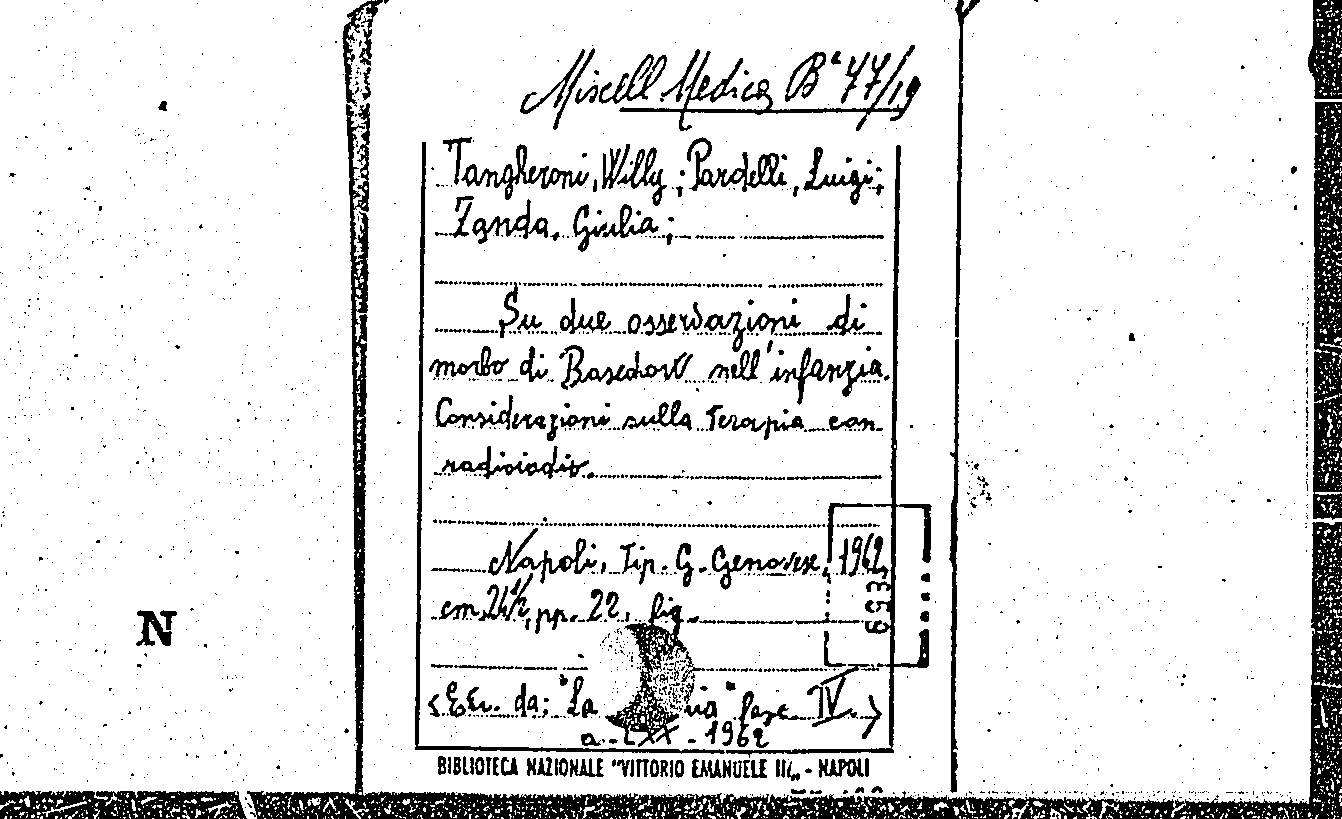 Miscell. Medica Bª 77/19
Tangheroni, Willy; Pardelli, Luigi;
Zanda, Giulia;
Su due osservazioni di
morbo di Basedow nell'infanzia.
Considerazioni sulla terapia con
radioiodio.
Napoli, Tip. G. Genovese, 1962,
cm. 24½, pp. 22, fig.
6539
<Estr. da: "La ria" fasc. IV.>
a. LXX - 1962
BIBLIOTECA NAZIONALE "VITTORIO EMANUELE III" - NAPOLI
N